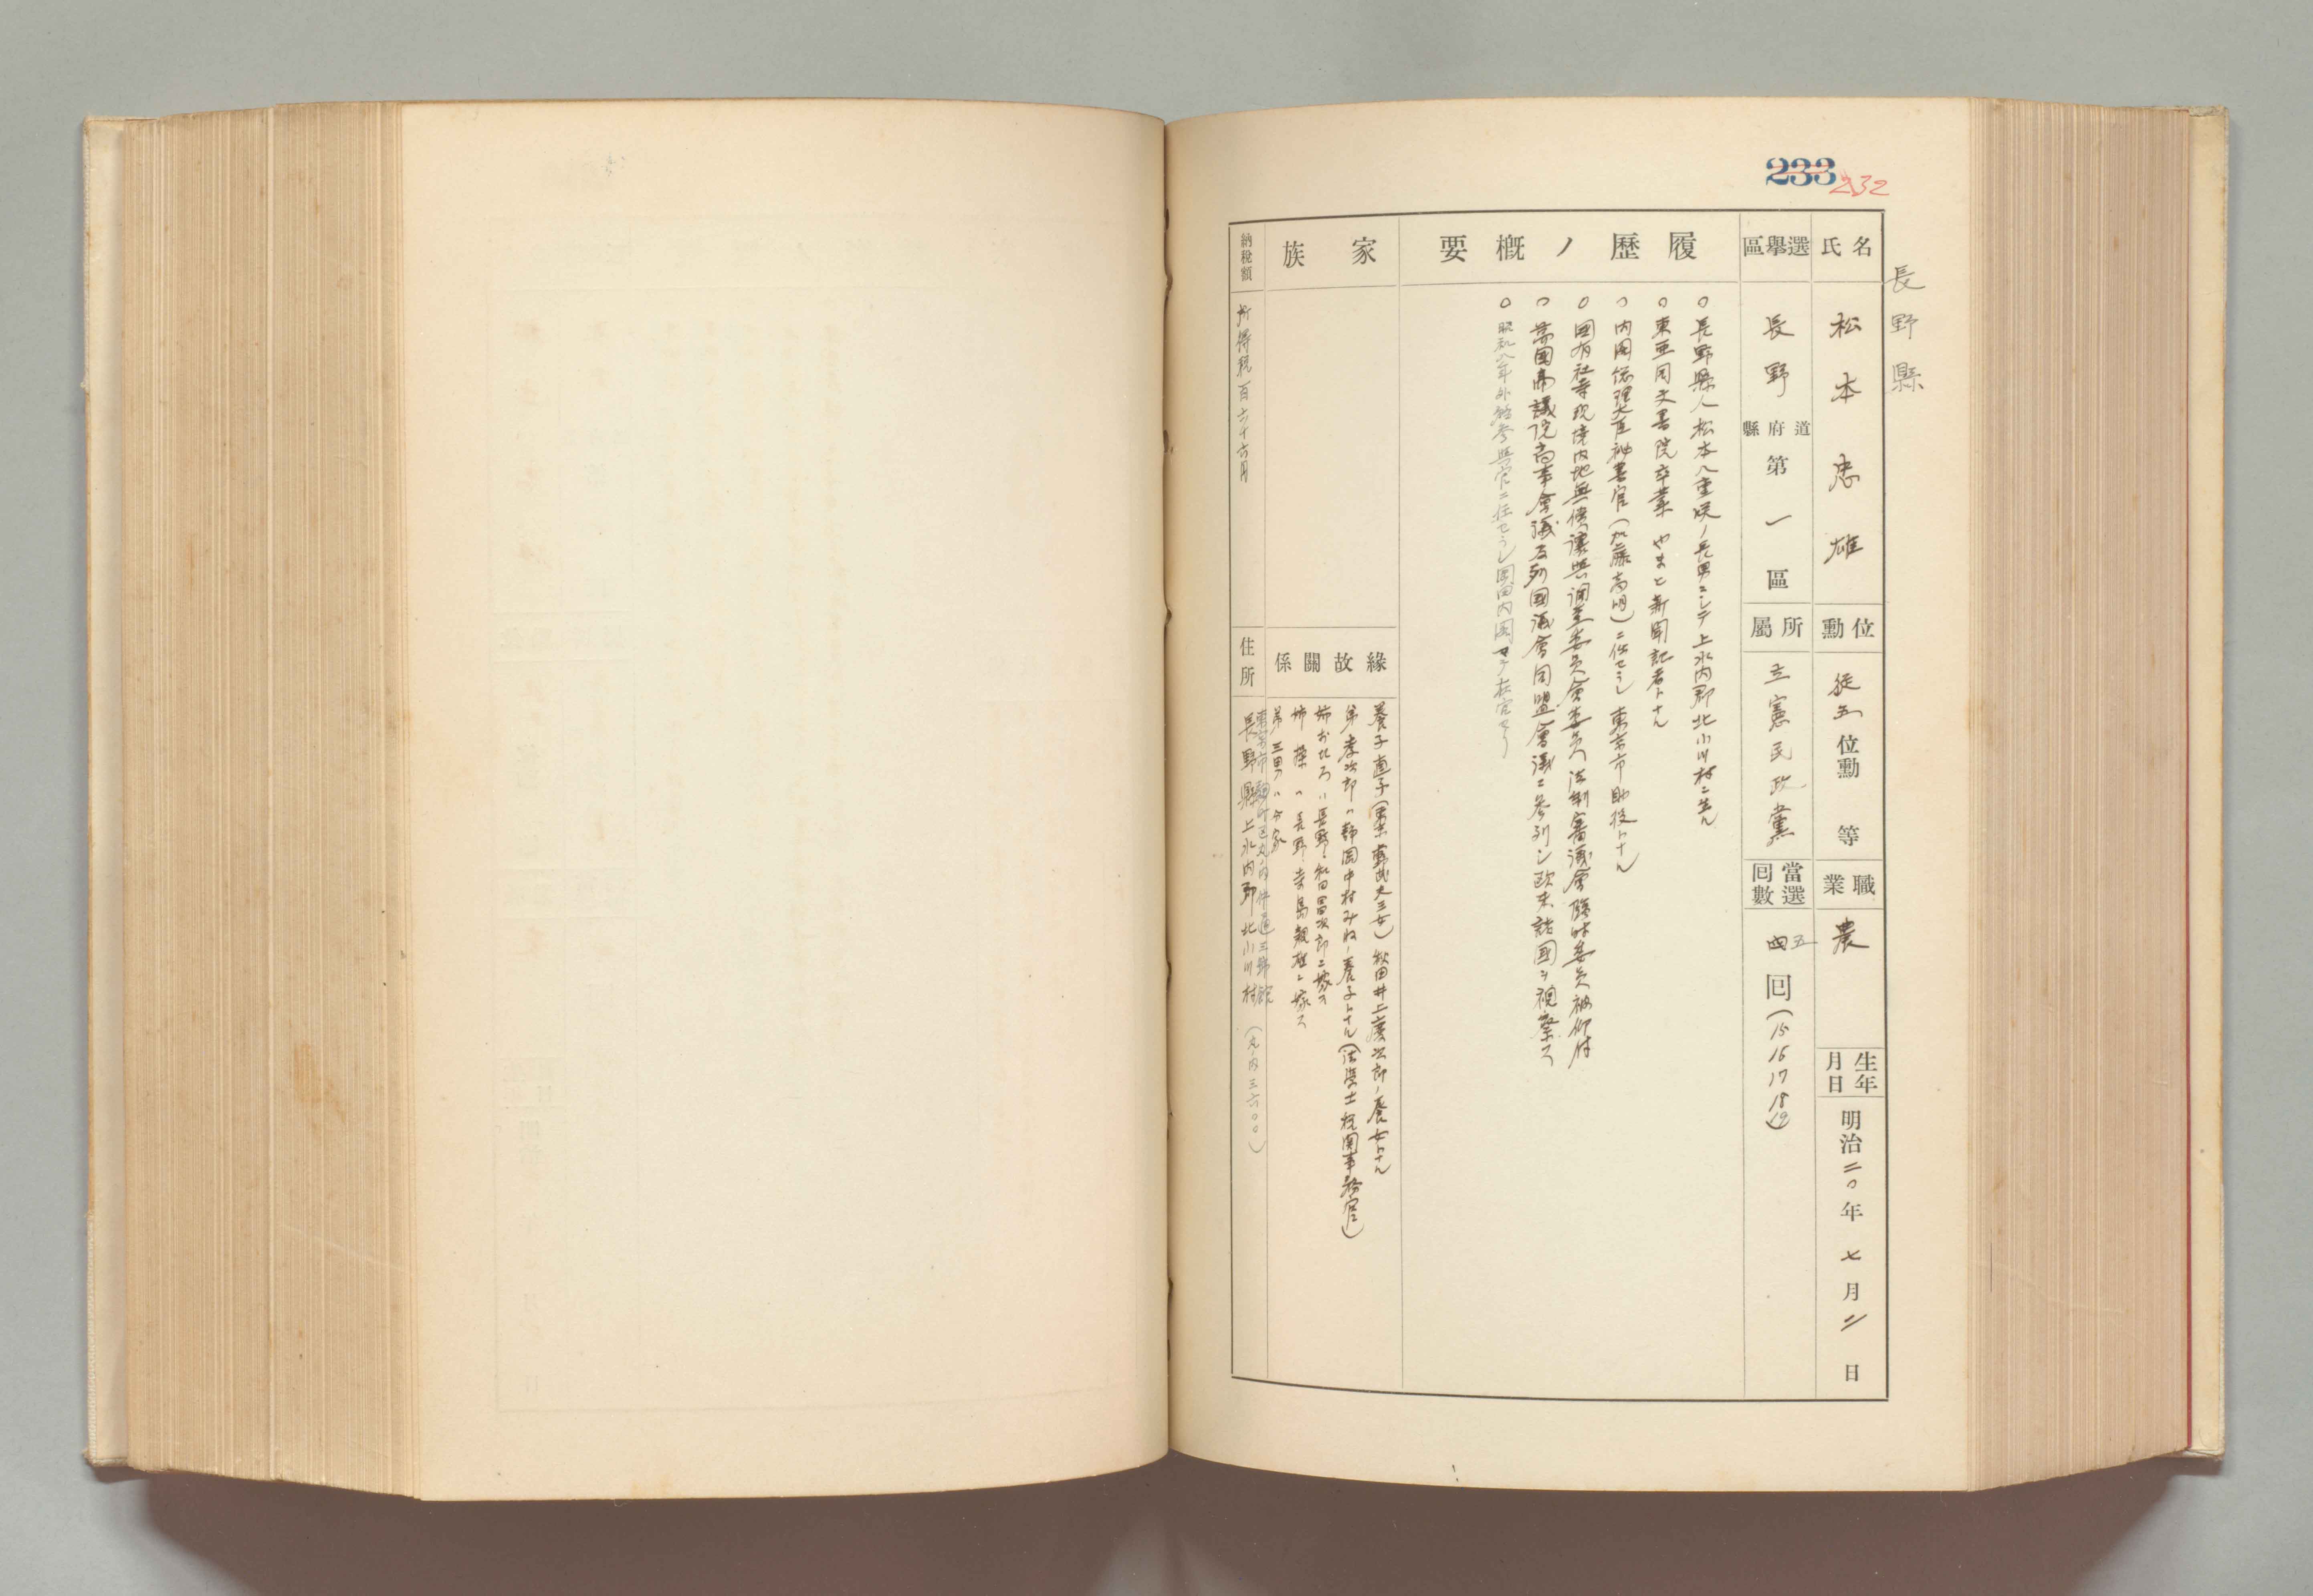 233 232
長野縣
氏名 松本忠雄
位勳 從五位勳 等
職業 農
生年月日 明治二〇年七月二日
選擧區 長野 道府縣 第一區
所屬 立憲民政黨
當選回數 四五回(15 16 17 18 19)
履歷ノ概要
○長野縣人松本八重咲ノ長男ニシテ上水内郡北小川村ニ生ル
○東亜同文書院卒業 やまと新聞記者トナル
○内閣總理大臣祕書官(加藤高明)ニ任セラレ東京市助役トナル
○國有社寺境内地無償讓與調査委員會委員 法制審議會臨時委員被仰付
○萬國商事會議及列國議會同盟會議ニ參列シ欧米諸國ヲ視察ス
○昭和八年外務參與官ニ任セラレ岡田内閣マデ在官セリ
家族
緣故關係
養子直子( 三女)秋田井上廣次郎ノ養女トナル
弟孝次郎ハ静岡中村みねノ養子トナル(法學士 税関事務官)
姉おひろハ長野、和田冨次郎ニ嫁ス
姉操ハ長野、寺島 ニ嫁ス
弟三男ハ分家
納稅額 所得税百六十六円
住所
東京市麹町区丸ノ内仲通三 館
長野縣上水内郡北小川村 (丸ノ内三六〇〇)